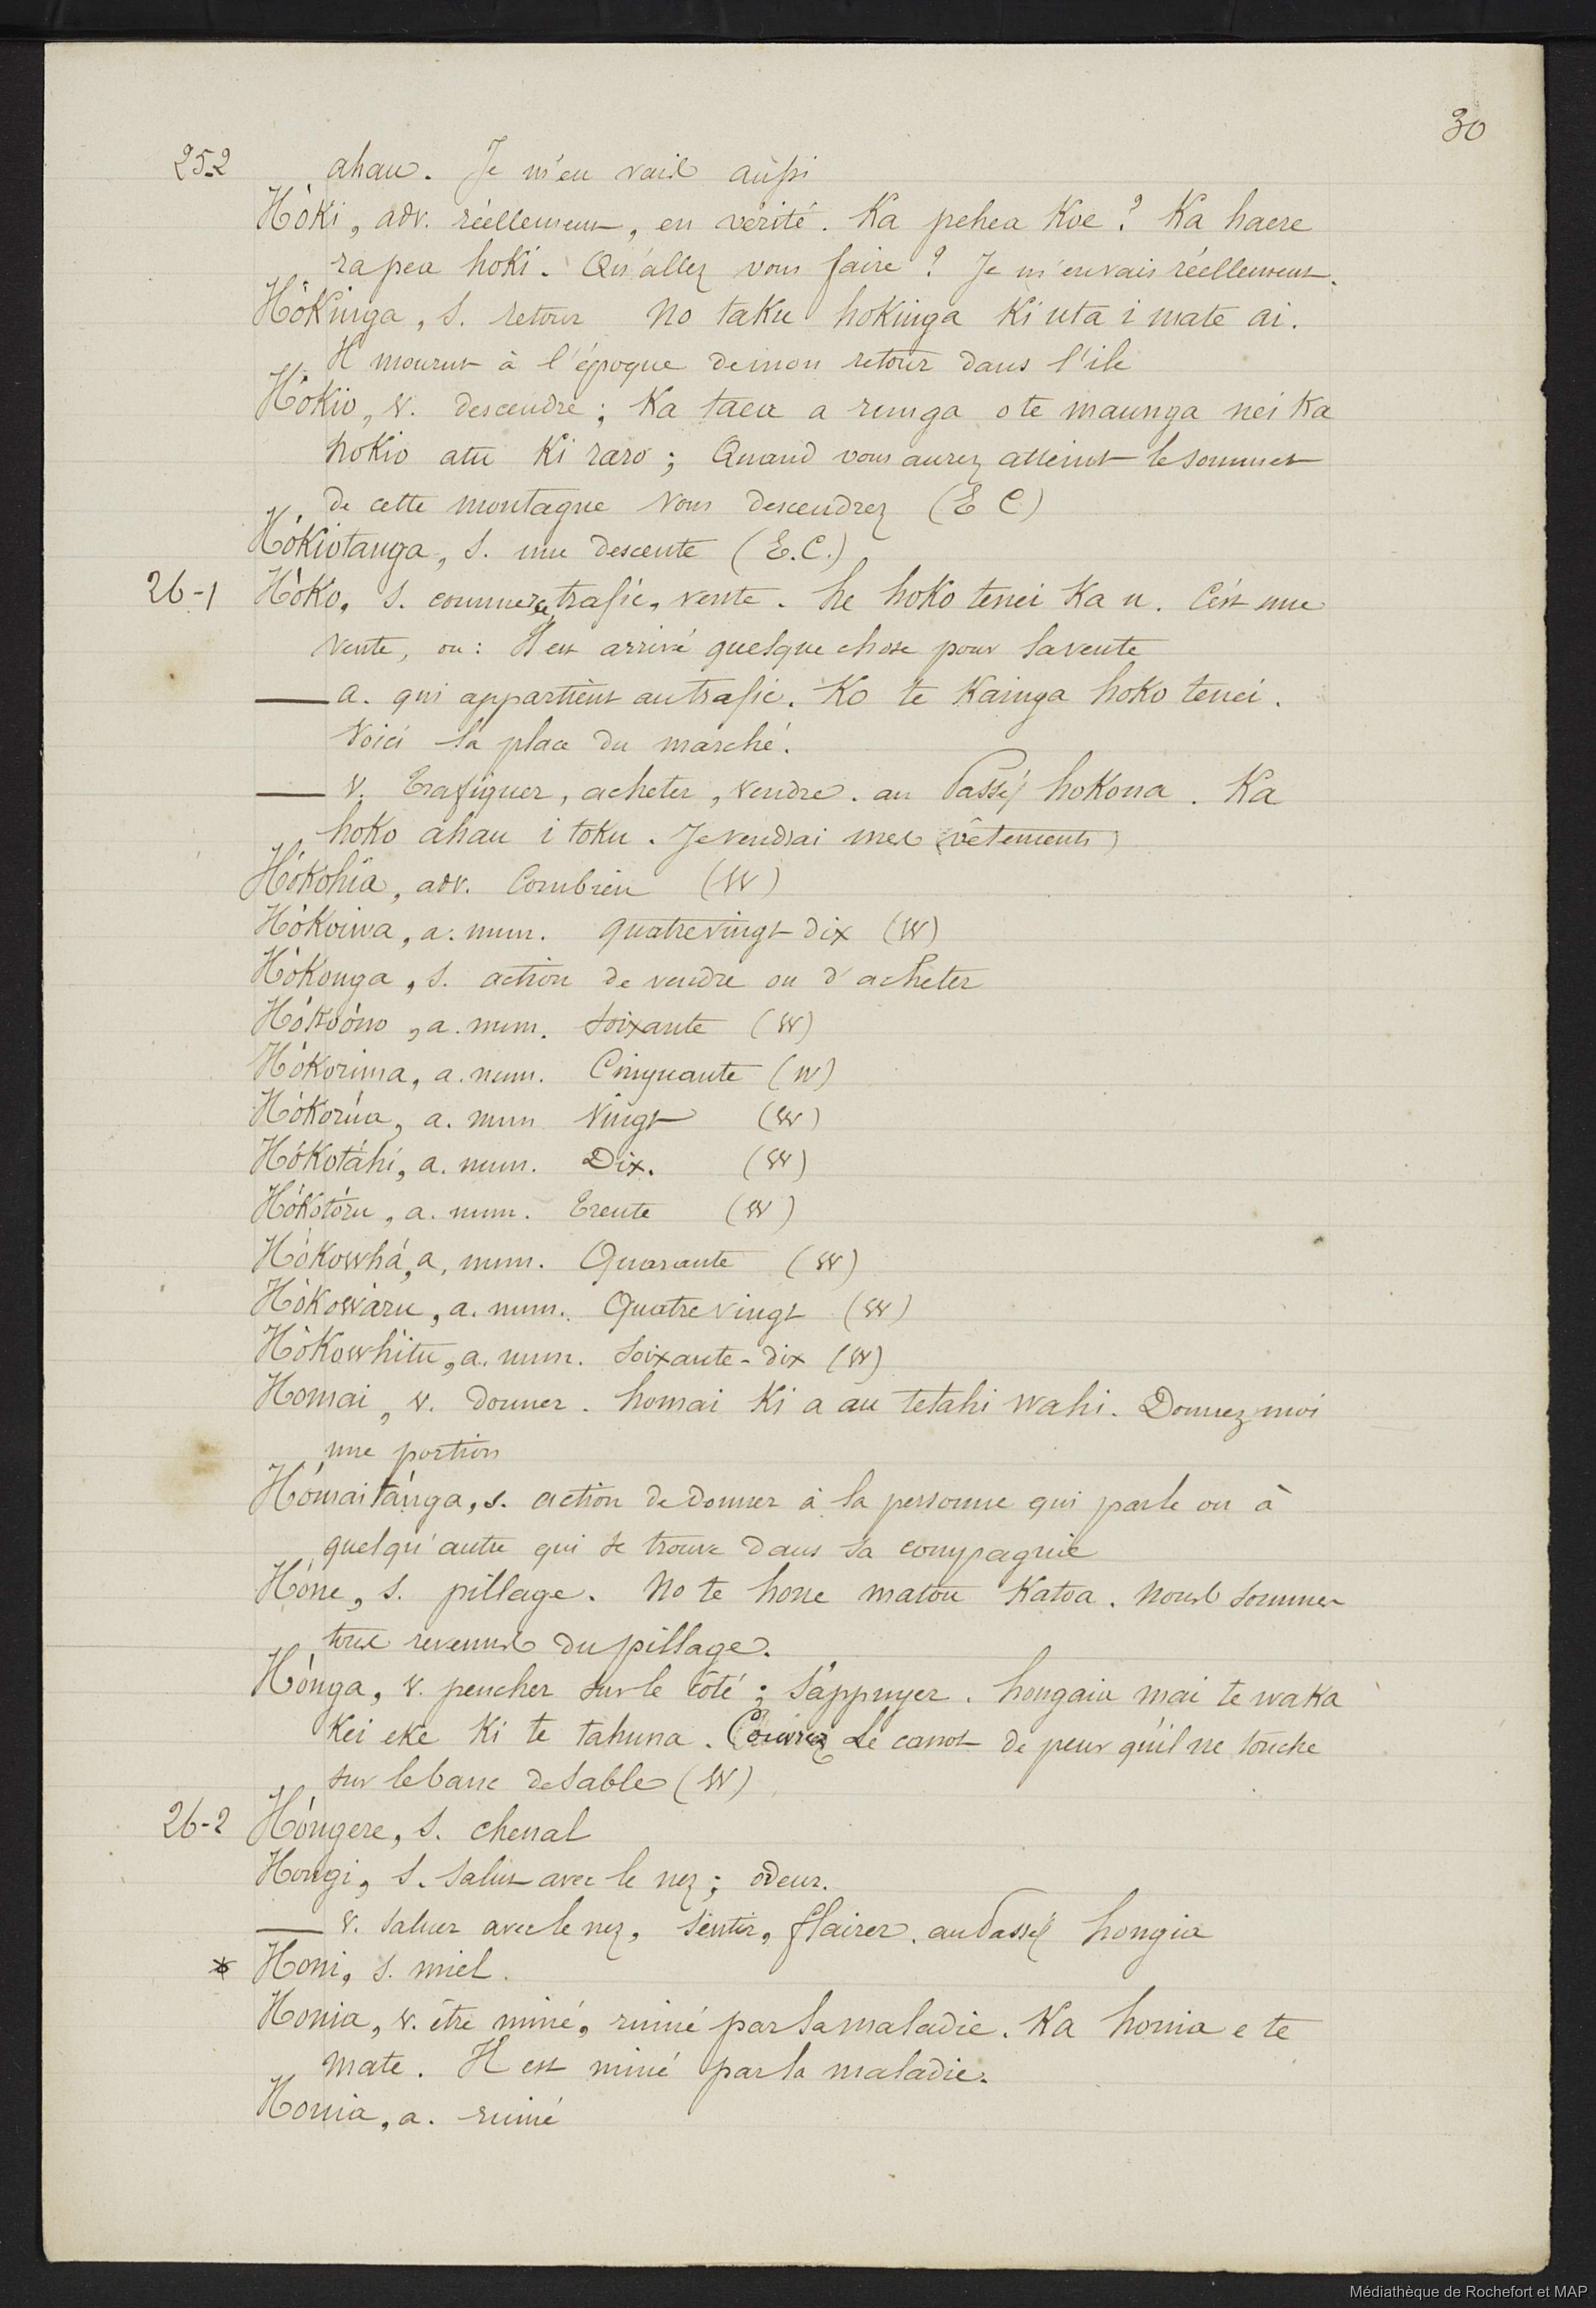 30
25-2 ahau. Je m'en vais aussi
Hóki, adv. réellement, en vérité. Ka pehea koe? Ka haere
rapea hoki. Qu'allez vous faire? Je m'en vais réellement.
Hókinga, s. retour No taku hokinga ki uta i mate ai.
Il mourut à l'époque de mon retour dans l'ile
Hókio, v. descendre; Ka taea a runga o te maunga nei ka
hokio atu ki raro; Quand vous aurez atteint le sommet
de cette montagne vous descendrez (E C)
Hókiotanga, s. une descente (E.C.)
26-1 Hóko, s. commerce, trafic, vente. he hoko tenei ka u. C'est une
vente, ou: Il est arrivé quelque chose pour la vente
— a. qui appartient au trafic. Ko te kainga hoko tenei.
Voici la place du marché.
— v. Trafiquer, acheter, vendre. au Passé/ hokona. Ka
hoko ahau i toku. Je vendrai mes (vêtements)
Hókohía, adv. Combien (W)
Hókoiwa, a. num. quatrevingt dix (W)
Hókonga, s. action de vendre ou d'acheter
Hókoóno, a. num. soixante (W)
Hókorima, a. num. Cinquante (W)
Hókorúa, a. num Vingt (W)
Hókotáhi, a. num. Dix. (W)
Hókotóru, a. num. Trente (W)
Hókowhá, a, num. Quarante (W)
Hókowáru, a. num. Quatrevingt (W)
Hókowhítu, a. num. soixante-dix (W)
Homai, v. donner. homai ki a au tetahi wahi. Donnez moi
une portion
Hómaitánga, s. action de donner à la personne qui parle ou à
quelqu'autre qui se trouve dans sa compagnie
Hóne, s. pillage. No te hone matou katoa. nous sommes
tous revenus du pillage.
Hónga, v. pencher sur le côté; s'appuyer. hongaia mai te waka
kei eke ki te tahuna. Couvrez le canot de peur qu'il ne touche
sur le banc de sable (W)
26-2 Hóngere, s. chenal
Hongi, s. salut avec le nez; odeur.
— v. saluer avec le nez, sentir, flairer. au Passé/ hongia
* Honi, s. miel.
Honia, v. être miné, ruiné par la maladie. Ka honia e te
mate. Il est miné par la maladie.
Honia, a. ruiné
Médiathèque de Rochefort et MAP